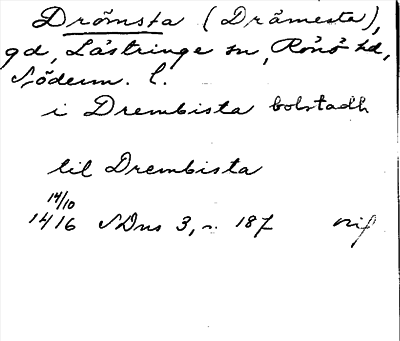 Drömsta (Drämesta),
gd, Lästringe sn, Rönö hd,
Söderm. l.
i Drembista bolstadh
til Drembista
14/10
1416 SDns 3, n. 187 orig